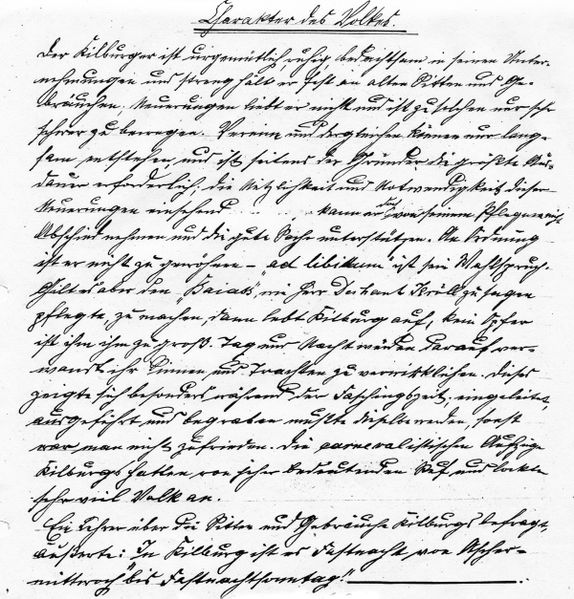 Charakter des Volkes.
Der Kilburger ist urgemütlich ruhig bedachtsam in seinen Unter-
nehmungen und streng hält er fest an alten Sitten und Ge-
bräuchen. Neuerungen liebt er nicht und ist zu solchen nur sehr
schwer zu bewegen. Vereine und dergleichen können nur lang-
sam entstehen und ist seitens der Gründer die größte Aus-
dauer erforderlich, die Nützlichkeit und Notwendigkeit dieser
Neuerungen einsehend kann er sich von seinem
Abschied nehmen und die gute Sache unterstützen. An Ordnung
ist er nicht zu gewöhnen – "ad libitum" ist sein Wahlspruch.
Gilt es aber den "Baias", wie Herr Dechant Kröll zu sagen
pflegte, zu machen, dann lebt Kilburg auf, kein Opfer
ist ihm ihm zu groß. Tag und Nacht werden darauf ver-
wandt ihr Sinnen und Trachten zu verwirklichen. Dieses
zeigte sich besonders während der Faschingszeit, eingeleitet,
ausgeführt und begraben mußte dieselbe werden, sonst
war man nicht zufrieden. Die carnevalistischen Aufzüge
Kilburgs hatten von jeher bedeutenden Ruf und lockte
sehr viel Volk an.
Ein Lehrer über die Sitten und Gebräuche Kilburgs befragt,
äußerte: "In Kilburg ist es Fastnacht von Ascher-
mittwoch bis Fastnachtsonntag."